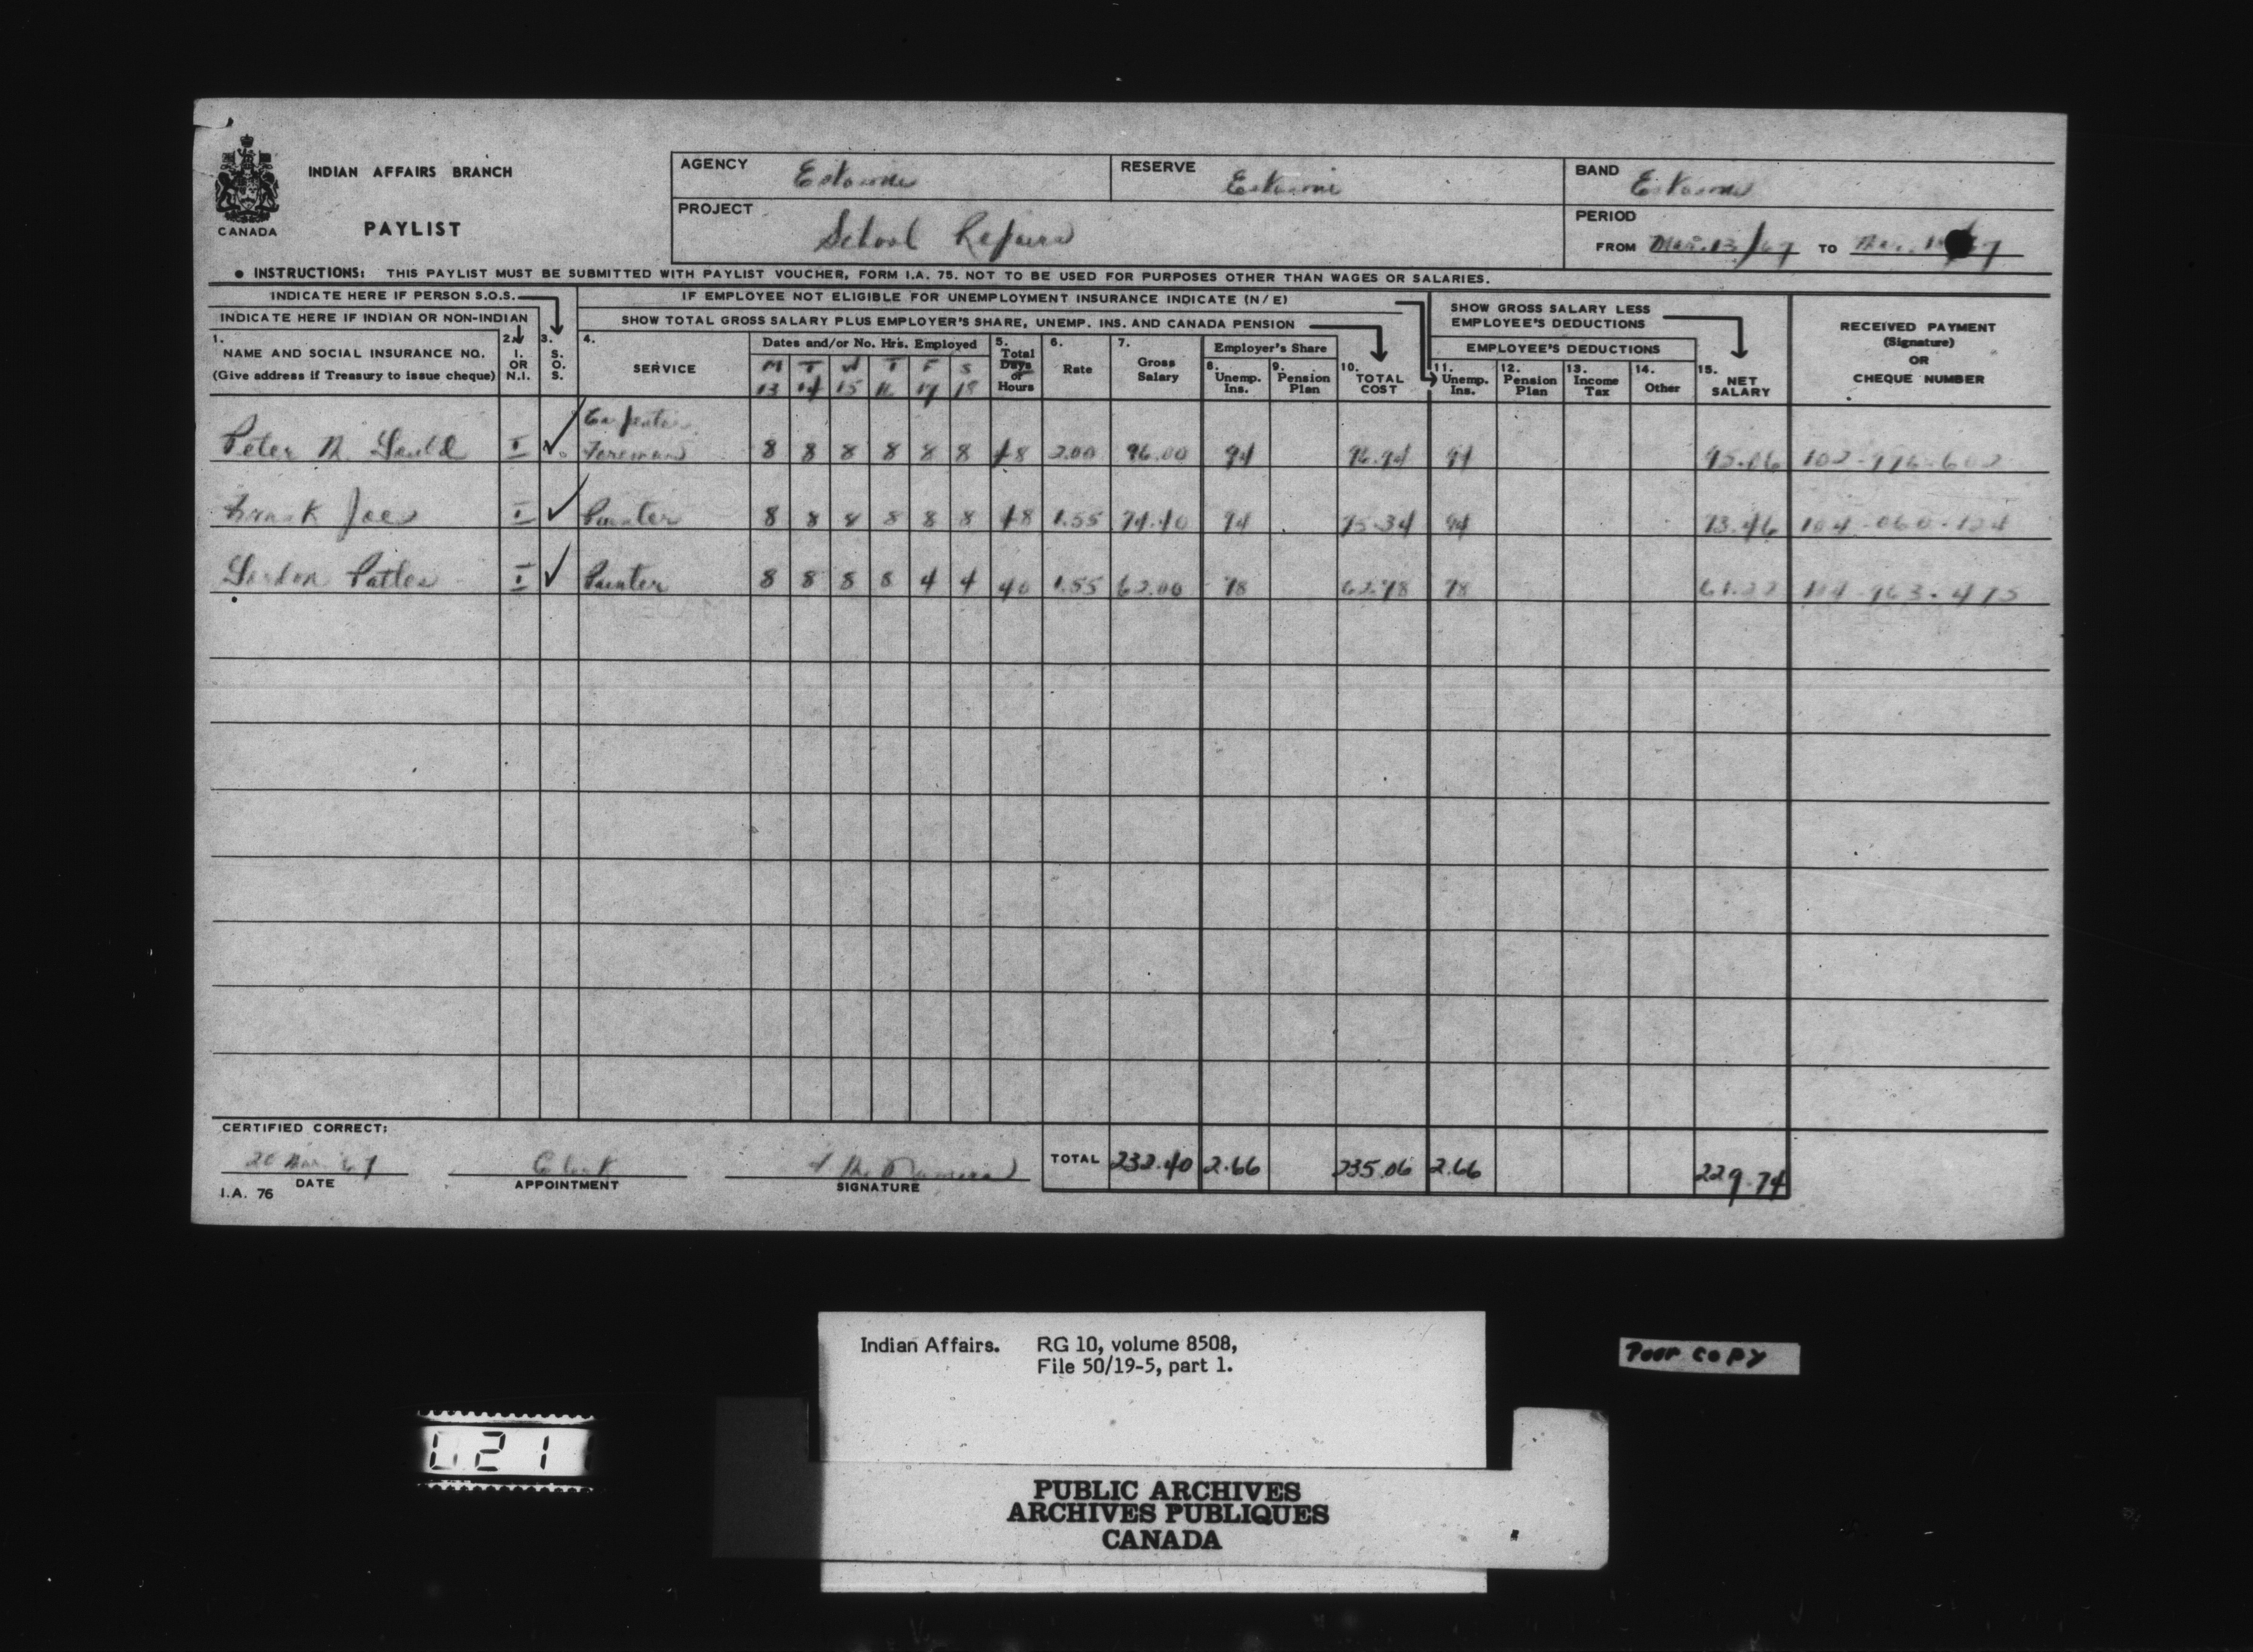 INDIAN AFFAIRS BRANCH
PAYLIST
CANADA
AGENCY Eskasoni
RESERVE Eskasoni
BAND Eskasoni
PROJECT School Repairs
PERIOD
FROM Mar. 13/67 TO Mar.
● INSTRUCTIONS: THIS PAYLIST MUST BE SUBMITTED WITH PAYLIST VOUCHER, FORM I.A. 75. NOT TO BE USED FOR PURPOSES OTHER THAN WAGES OR SALARIES.
INDICATE HERE IF PERSON S.O.S.
INDICATE HERE IF INDIAN OR NON-INDIAN
IF EMPLOYEE NOT ELIGIBLE FOR UNEMPLOYMENT INSURANCE INDICATE (N/E)
SHOW TOTAL GROSS SALARY PLUS EMPLOYER'S SHARE, UNEMP. INS. AND CANADA PENSION
SHOW GROSS SALARY LESS
EMPLOYEE'S DEDUCTIONS
1. NAME AND SOCIAL INSURANCE NO.
(Give address if Treasury to issue cheque)
2. I. OR N.I.
3. S. O. S.
4. SERVICE
Dates and/or No. Hrs. Employed
M T W T F S
13 14 15 16 17 18
5. Total Days or Hours
6. Rate
7. Gross Salary
Employer's Share
8. Unemp. Ins.
9. Pension Plan
10. TOTAL COST
EMPLOYEE'S DEDUCTIONS
11. Unemp. Ins.
12. Pension Plan
13. Income Tax
14. Other
15. NET SALARY
RECEIVED PAYMENT
(Signature)
OR
CHEQUE NUMBER
Carpenter
Peter I ✓ Foreman 8 8 8 8 8 8 48 2.00 96.00 94 96.94 94 95.06
Frank Joe I ✓ Painter 8 8 8 8 8 8 48 1.55 74.40 94 75.34 94 73.46
I ✓ Painter 8 8 8 8 4 4 40 1.55 62.00 78 62.78 78 61.22
CERTIFIED CORRECT:
20 Mar. 67
DATE
Clerk
APPOINTMENT
SIGNATURE
TOTAL 232.40 2.66 235.06 2.66 229.74
I.A. 76
Indian Affairs. RG 10, volume 8508,
File 50/19-5, part 1.
Poor copy
21
PUBLIC ARCHIVES
ARCHIVES PUBLIQUES
CANADA